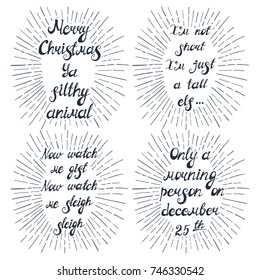 Merry
Christmas
Ya
filthy
animal
I'm not
short
I'm just
a tall
elf...
Now watch
me gist
Now watch
me sleigh
sleigh
Only a
morning
person on
december
25 th